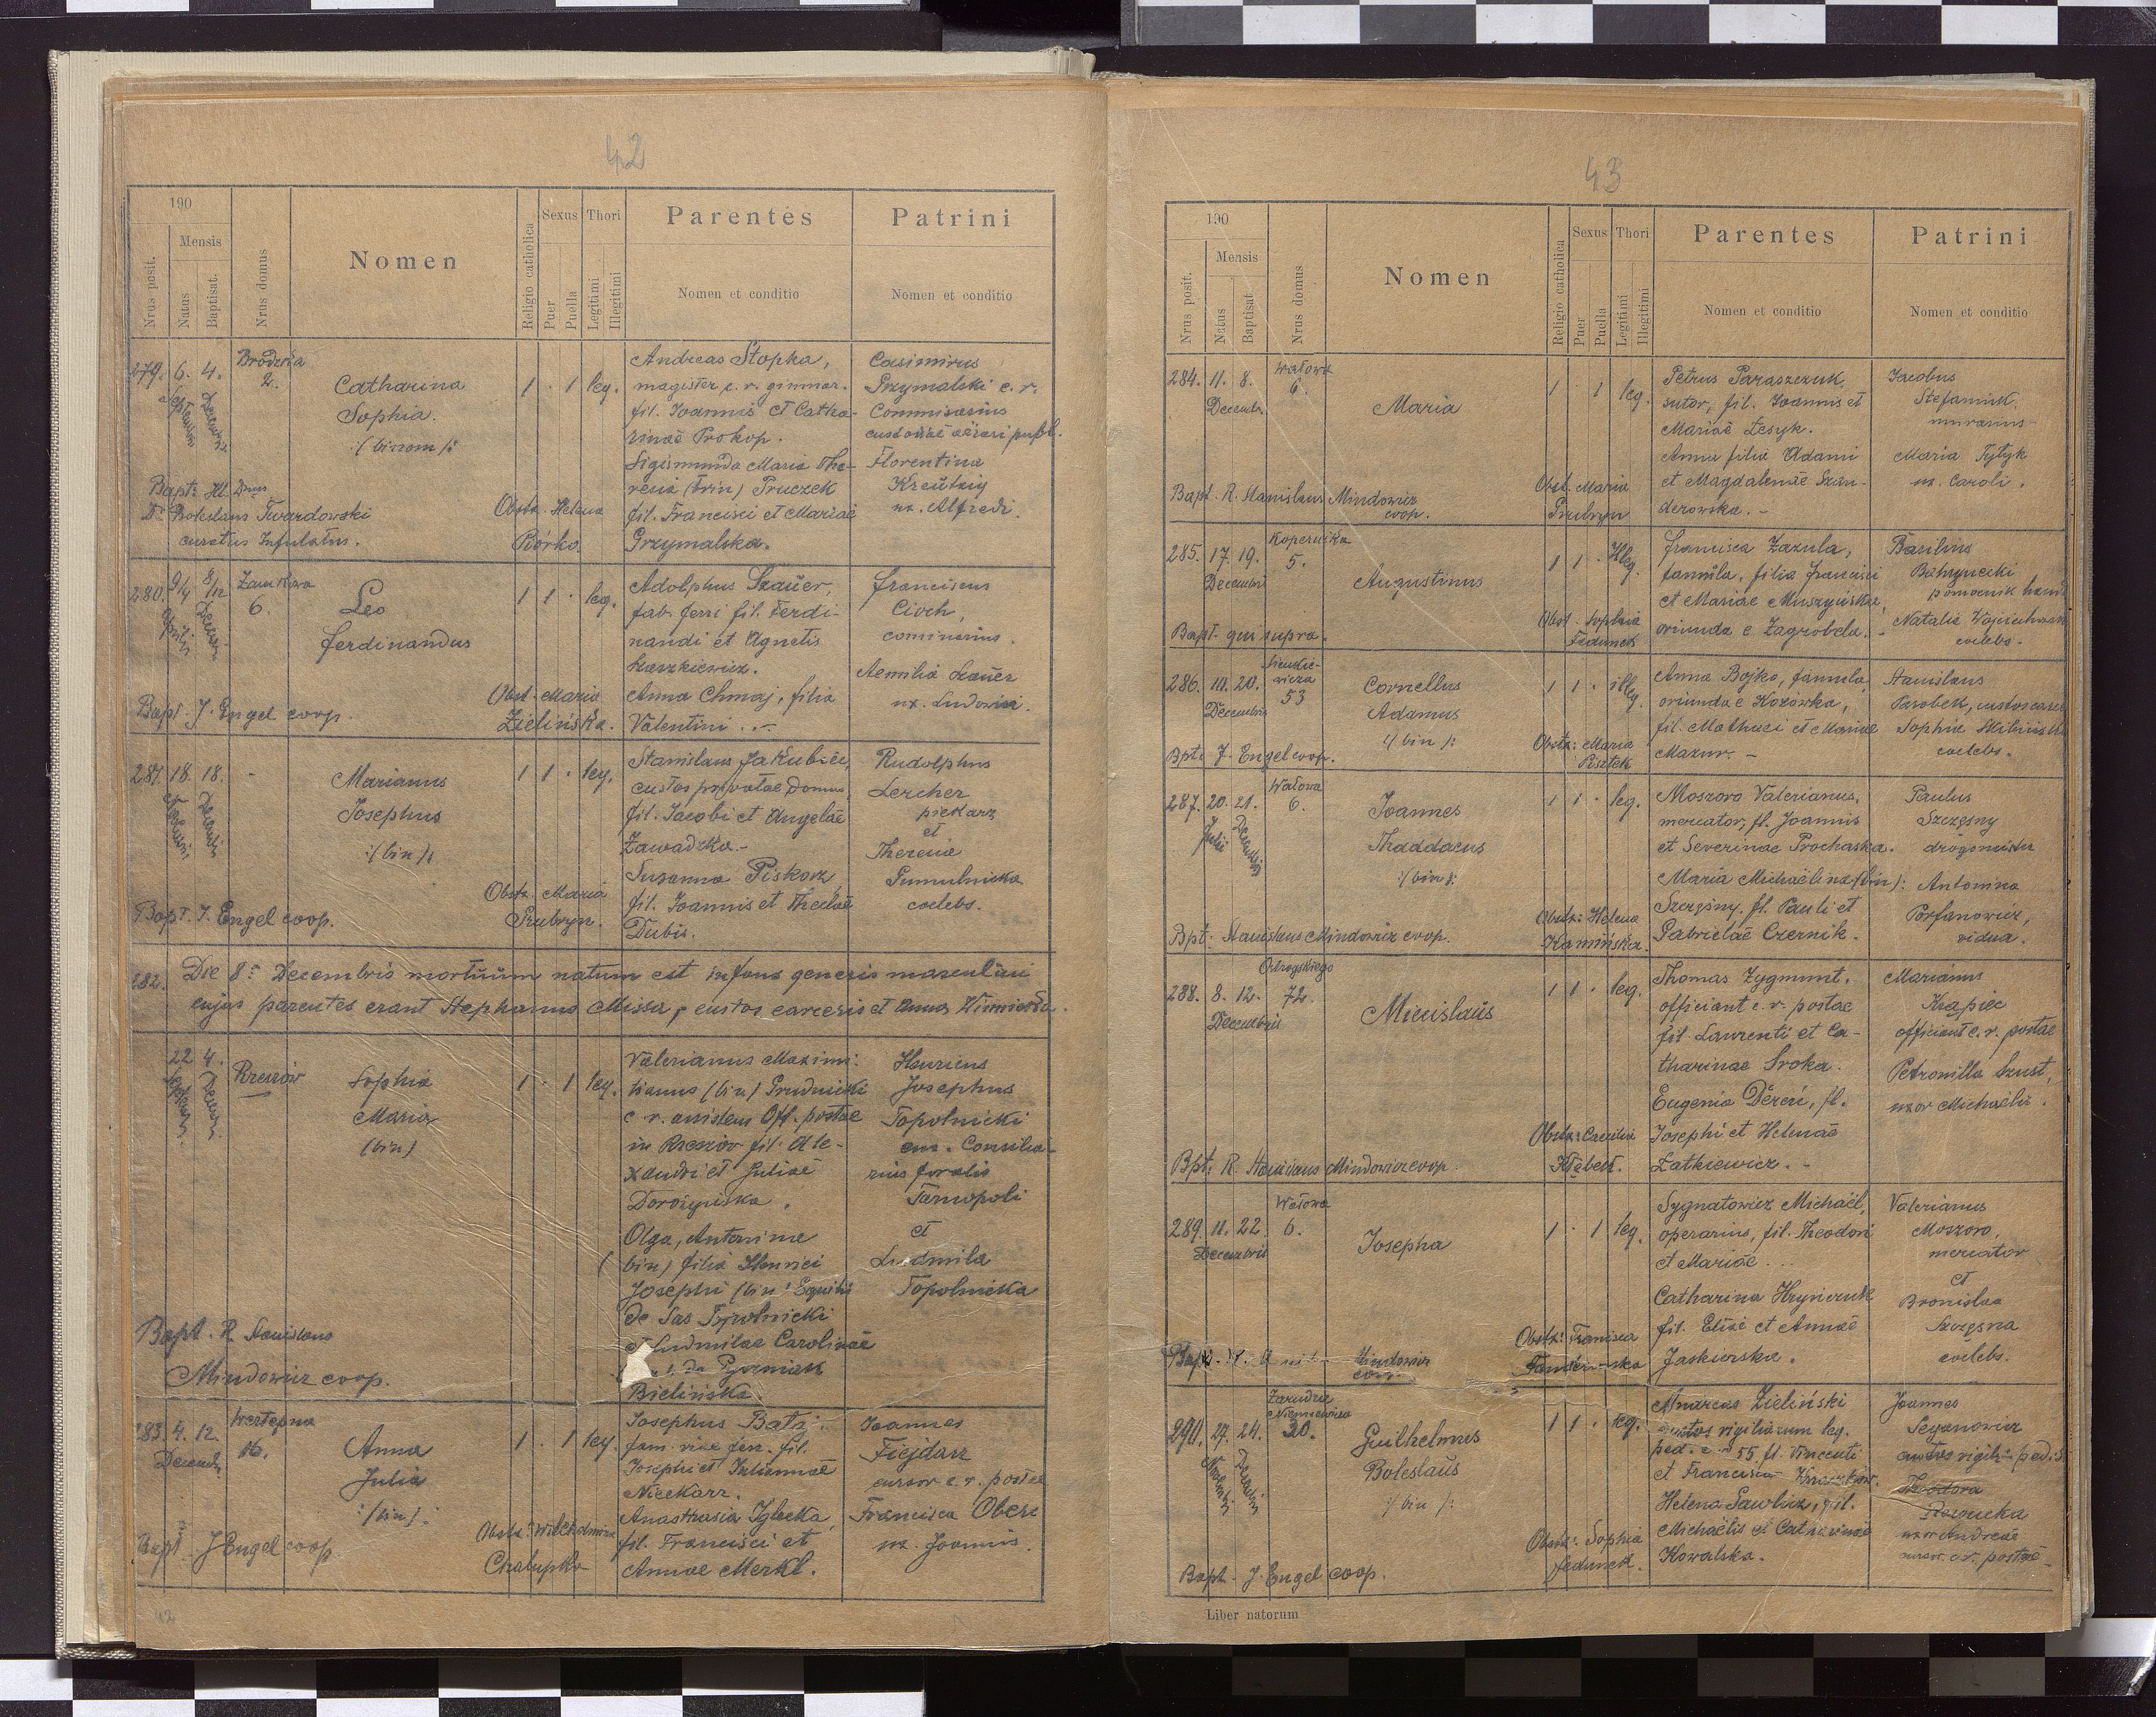 42
190
Nrus posit.
Mensis
Natus
Baptisat.
Nrus domus
Nomen
Religio catholica
Sexus
Puer
Puella
Thori
Legitimi
Illegitimi
Parentes
Nomen et conditio
Patrini
Nomen et conditio
279. 6. 4. Brodzka 2.
Decembris
Catharina
Sophia.
:/binom/:
1 · 1 leg.
Bapt: Ill. Dnus
Dr Boleslaus Twardowski
curatus Infulatus.
Obstx Helena
Borko
Andreas Stopka,
magister c. r. gimnas.
fil. Joannis et Catha-
rinae Prokop.
Sigismunda Maria The-
resia (trin) Pruczek
fil. Francisci et Mariae
Grzymalska.
Casimirus
Grzymalski c. r.
Commisarius
custodiae aerari publ.
Florentina
Kreutny
ux. Alfredi.
280. 9/4 8/12 Zamkowa
6.
Aprilis
Decembris
Leo
Ferdinandus
1 1 · leg.
Bapt. J. Engel coop.
Obst. Maria
Zielinska.
Adolphus Szauer,
fab. ferri fil. Ferdi-
nandi et Agnetis
Laszkiewicz.
Anna Chmaj, filia
Valentini . . –
Franciscus
Cioch,
cominarius.
Aemilia Lauer
ux. Ludovici.
281. 18. 18. -
Decembris
Marianus
Josephus
:/bin/:
1 1 · leg.
Bapt. J. Engel coop.
Obstx. Maria
Prubryn.
Stanislaus Jakubiec,
custos privatae domus
fil. Jacobi et Angelae
Zawadzka.-
Susanna Piskorz
fil. Joannis et Theclae
Dubis.
Rudolphus
Lercher
piekarz
et
Theresia
Sumulnicka
coelebs.
282. Die 8a Decembris mortuum natum est infans generis masculini
cujus parentes erant Stephanus Missa, custos carceris et Anna Winnicka.
22 4. Rzeszów
Sophia
Maria
(bin)
1 · 1 leg.
Bapt. R. Stanislaus
Mindowicz coop.
Valerianus Maximi-
lianus (bin) Prudnicki
c r. assistens Off. postae
in Rzeszów fil. Ale-
xandri et Juliae
Dorożynska.
Olga, Antonina
(bin) filia Henrici
Josephi (bin) Equitis
de Sas Topolnicki
et Ludmilae Carolinae
Bielińska
Henricus
Josephus
Topolnicki
em. Consilia-
rius foralis
Tarnopoli
et
Ludmila
Topolnicka
283. 4. 12.
Decembr.
Wertepna
16.
Anna
Julia
:/bin/:
1 · 1 leg.
Bapt. J Engel coop
Obstx: Wilhelmina
Chalupka
Josephus Bataj.
fam. viae ferr. fil.
Josephi et Julianae
Nieckarz.
Anasthasia Iglecka,
fil. Francisci et
Annae Merkl.
Joannes
Fiejdasz
cursor c. r. postae
Francisca Oberc
ux. Joannis.
42
43
190
Nrus posit.
Mensis
Natus
Baptisat
Nrus domus
Nomen
Religio catholica
Sexus
Puer
Puella
Thori
Legitimi
Illegitimi
Parentes
Nomen et conditio
Patrini
Nomen et conditio
284. 11. 8. Wałowa
6.
Decembr.
Maria
1 1 leg.
Bapt. R. Stanislaus Mindowicz
coop.
Obst. Maria
Prubryn
Petrus Paraszczuk,
sutor, fil. Joannis et
Mariae Lesyk.
Anna filia Adami
et Magdalenae Szan-
derowska. –
Jacobus
Stefaniuk
murarius
Maria Tytyk
ux. Caroli.
285. 17. 19. Kopernika
5.
Decembris
Augustinus
1 1 · Illeg.
Bapt. qui supra.
Obst. Sophia
Fedunek
Francisca Zazula,
famula, filia Francisci
et Mariae Muszyńska,
oriunda e Zagrobela. -
Basilius
Bahrynecki
pomocnik hand
Natalia Wojciechowska
coelebs.
286. 10. 20. Sienkie-
wicza
53
Decembris
Cornellus
Adamus
:/bin/:
1 1 · illeg.
Bpt: J. Engel coop.
Obstx: Maria
Pisztek
Anna Bojko, famula
oriunda e Kozówka,
fil. Mathaei et Mariae
Mazur. –
Stanislaus
Parobek, custos carcer
Sophia
coelebs.
287. 20. 21. Wałowa
6.
Julii
Decembris
Joannes
Thaddaeus
:/bin/:
1 1 · leg.
Bpt: Stanislaus Mindowicz coop.
Obstx: Helena
Kamińska.
Moszoro Valerianus,
mercator, fl. Joannis
et Severinae Prochaska.
Maria Michaëlina (bin):
Szczęsny, fl. Pauli et
Gabrielae Czernik.
Paulus
Szczęsny
drogomistrz
Antonina
Porfanowicz,
vidua.
288. 8. 12. Ostrogskiego
72.
Decembris
Miecislaus
1 1 · leg.
Bpt: R. Stanislaus Mindowicz coop.
Obstx: Cecilia
Kłębek.
Thomas Zygmunt,
officiant c. r. postae
fil. Laurenti et Ca-
tharinae Sroka.
Eugenia Dereń, fl.
Josephi et Helenae
Zatkiewicz. –
Marianus
Krąpiec
officiant c. r. postae
Petronilla Szust,
uxor Michaëlis.
289. 11. 22. Wałowa
6.
Decembris
Josepha
1 · 1 leg.
Mindowicz
coop.
Obstx: Francisca
Sygnatowicz Michaël,
operarius, fil. Theodori
et Mariae . . .
Catharina Hryniczuk
fil. Eliae et Annae
Jaskierska.
Valerianus
Moszoro,
mercator
et
Bronislaa
Szczęsna
coelebs.
290. 27. 24. Zarudzie
30.
Decembris
Guilhelmus
Boleslaus
:/bin/:
1 1 · leg.
Bapt. J. Engel coop.
Obstx: Sophia
Fedunek.
Andreas Zieliński
custos vigiliarum leg.
ped. c. r 55 fl. Vincenti
et Francisca
Helena Sawlicz, fil.
Michaëlis et Catharinae
Kowalska.
Joannes
Seganowicz
custos vigil. ped.
Theodora
uxor Andreae
cursor. c. r. postae -
Liber natorum